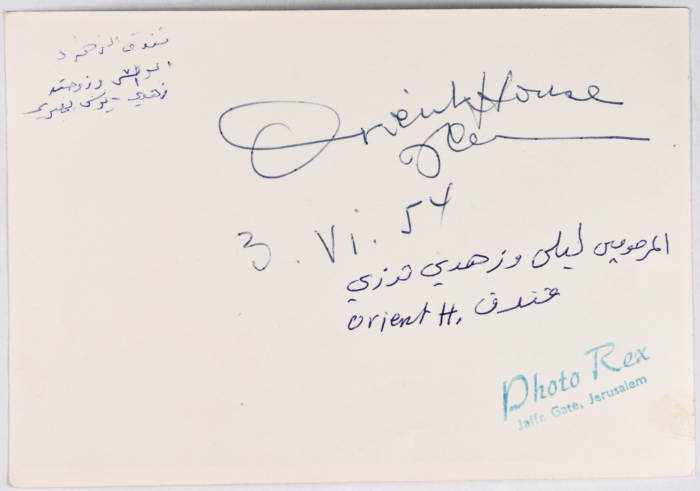 فندق الزهراء
وزوجته
Orient House
Jer
3. VI. 54
المرحومين ليلى وزهدي ترزي
فندق Orient H.
Photo Rex
Jaffa Gate, Jerusalem